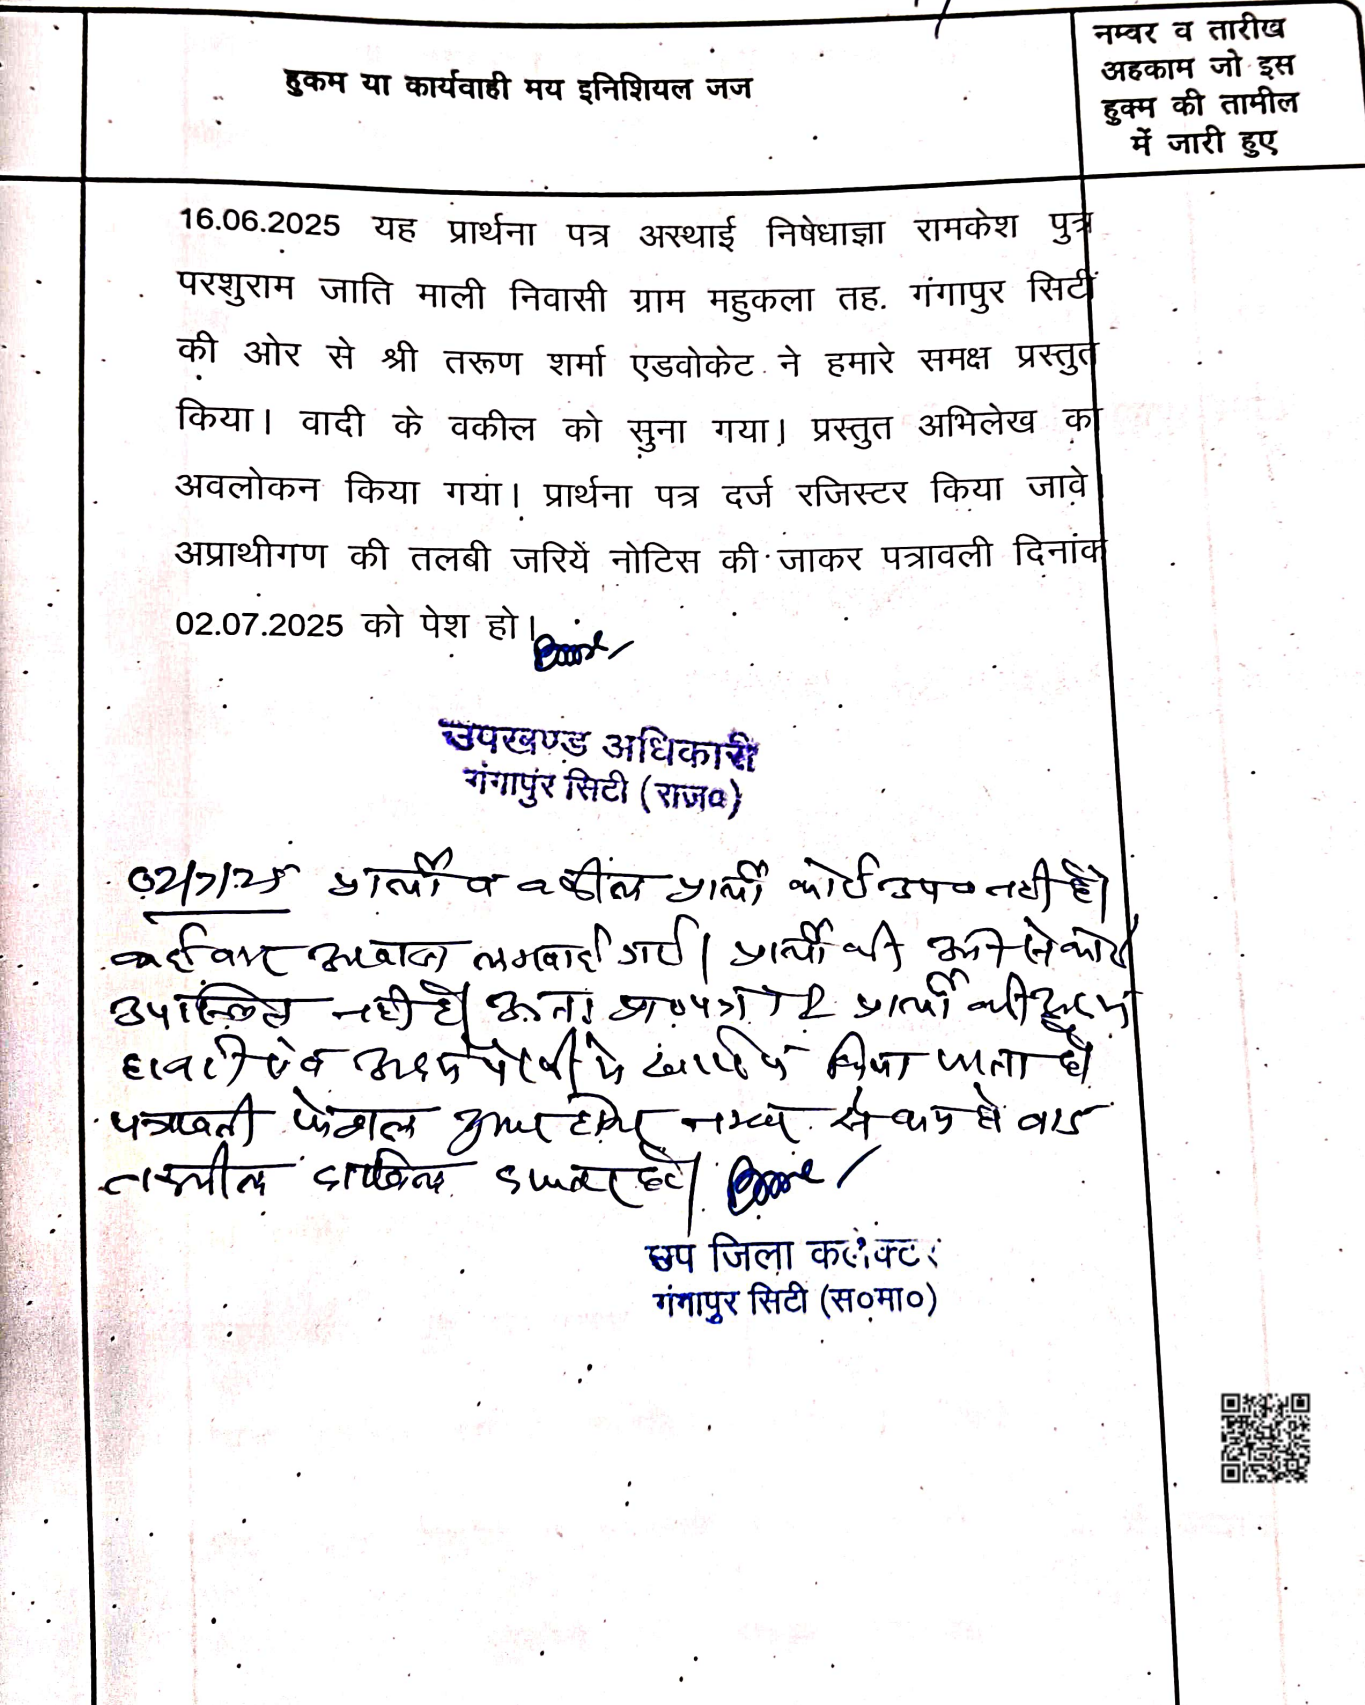 हुकम या कार्यवाही मय इनिशियल जज
नम्वर व तारीख
अहकाम जो इस
हुक्म की तामील
में जारी हुए
16.06.2025 यह प्रार्थना पत्र अस्थाई निषेधाज्ञा रामकेश पुत्र
परशुराम जाति माली निवासी ग्राम महुकला तह. गंगापुर सिटी
की ओर से श्री तरूण शर्मा एडवोकेट ने हमारे समक्ष प्रस्तुत
किया। वादी के वकील को सुना गया। प्रस्तुत अभिलेख का
अवलोकन किया गया। प्रार्थना पत्र दर्ज रजिस्टर किया जावे
अप्राथीगण की तलबी जरियें नोटिस की जाकर पत्रावली दिनांक
02.07.2025 को पेश हो।
उपखण्ड अधिकारी
गंगापुर सिटी (राज०)
02/7/25 प्रार्थी व वकील प्रार्थी कोई उप० नही है।
कई बार आवाज लगवाई गई। प्रार्थी की ओर से कोई
उपस्थित नही है। अतः प्रा०पत्र प्रार्थी की अदम
हाजरी एवं अदम पैरवी मे खारीज किया जाता है
पत्रावली फैसल शुमार होकर नम्बर से कम हो बाद
तकमील दाखिल दफ्तर हो।
उप जिला कलेक्टर
गंगापुर सिटी (स०मा०)